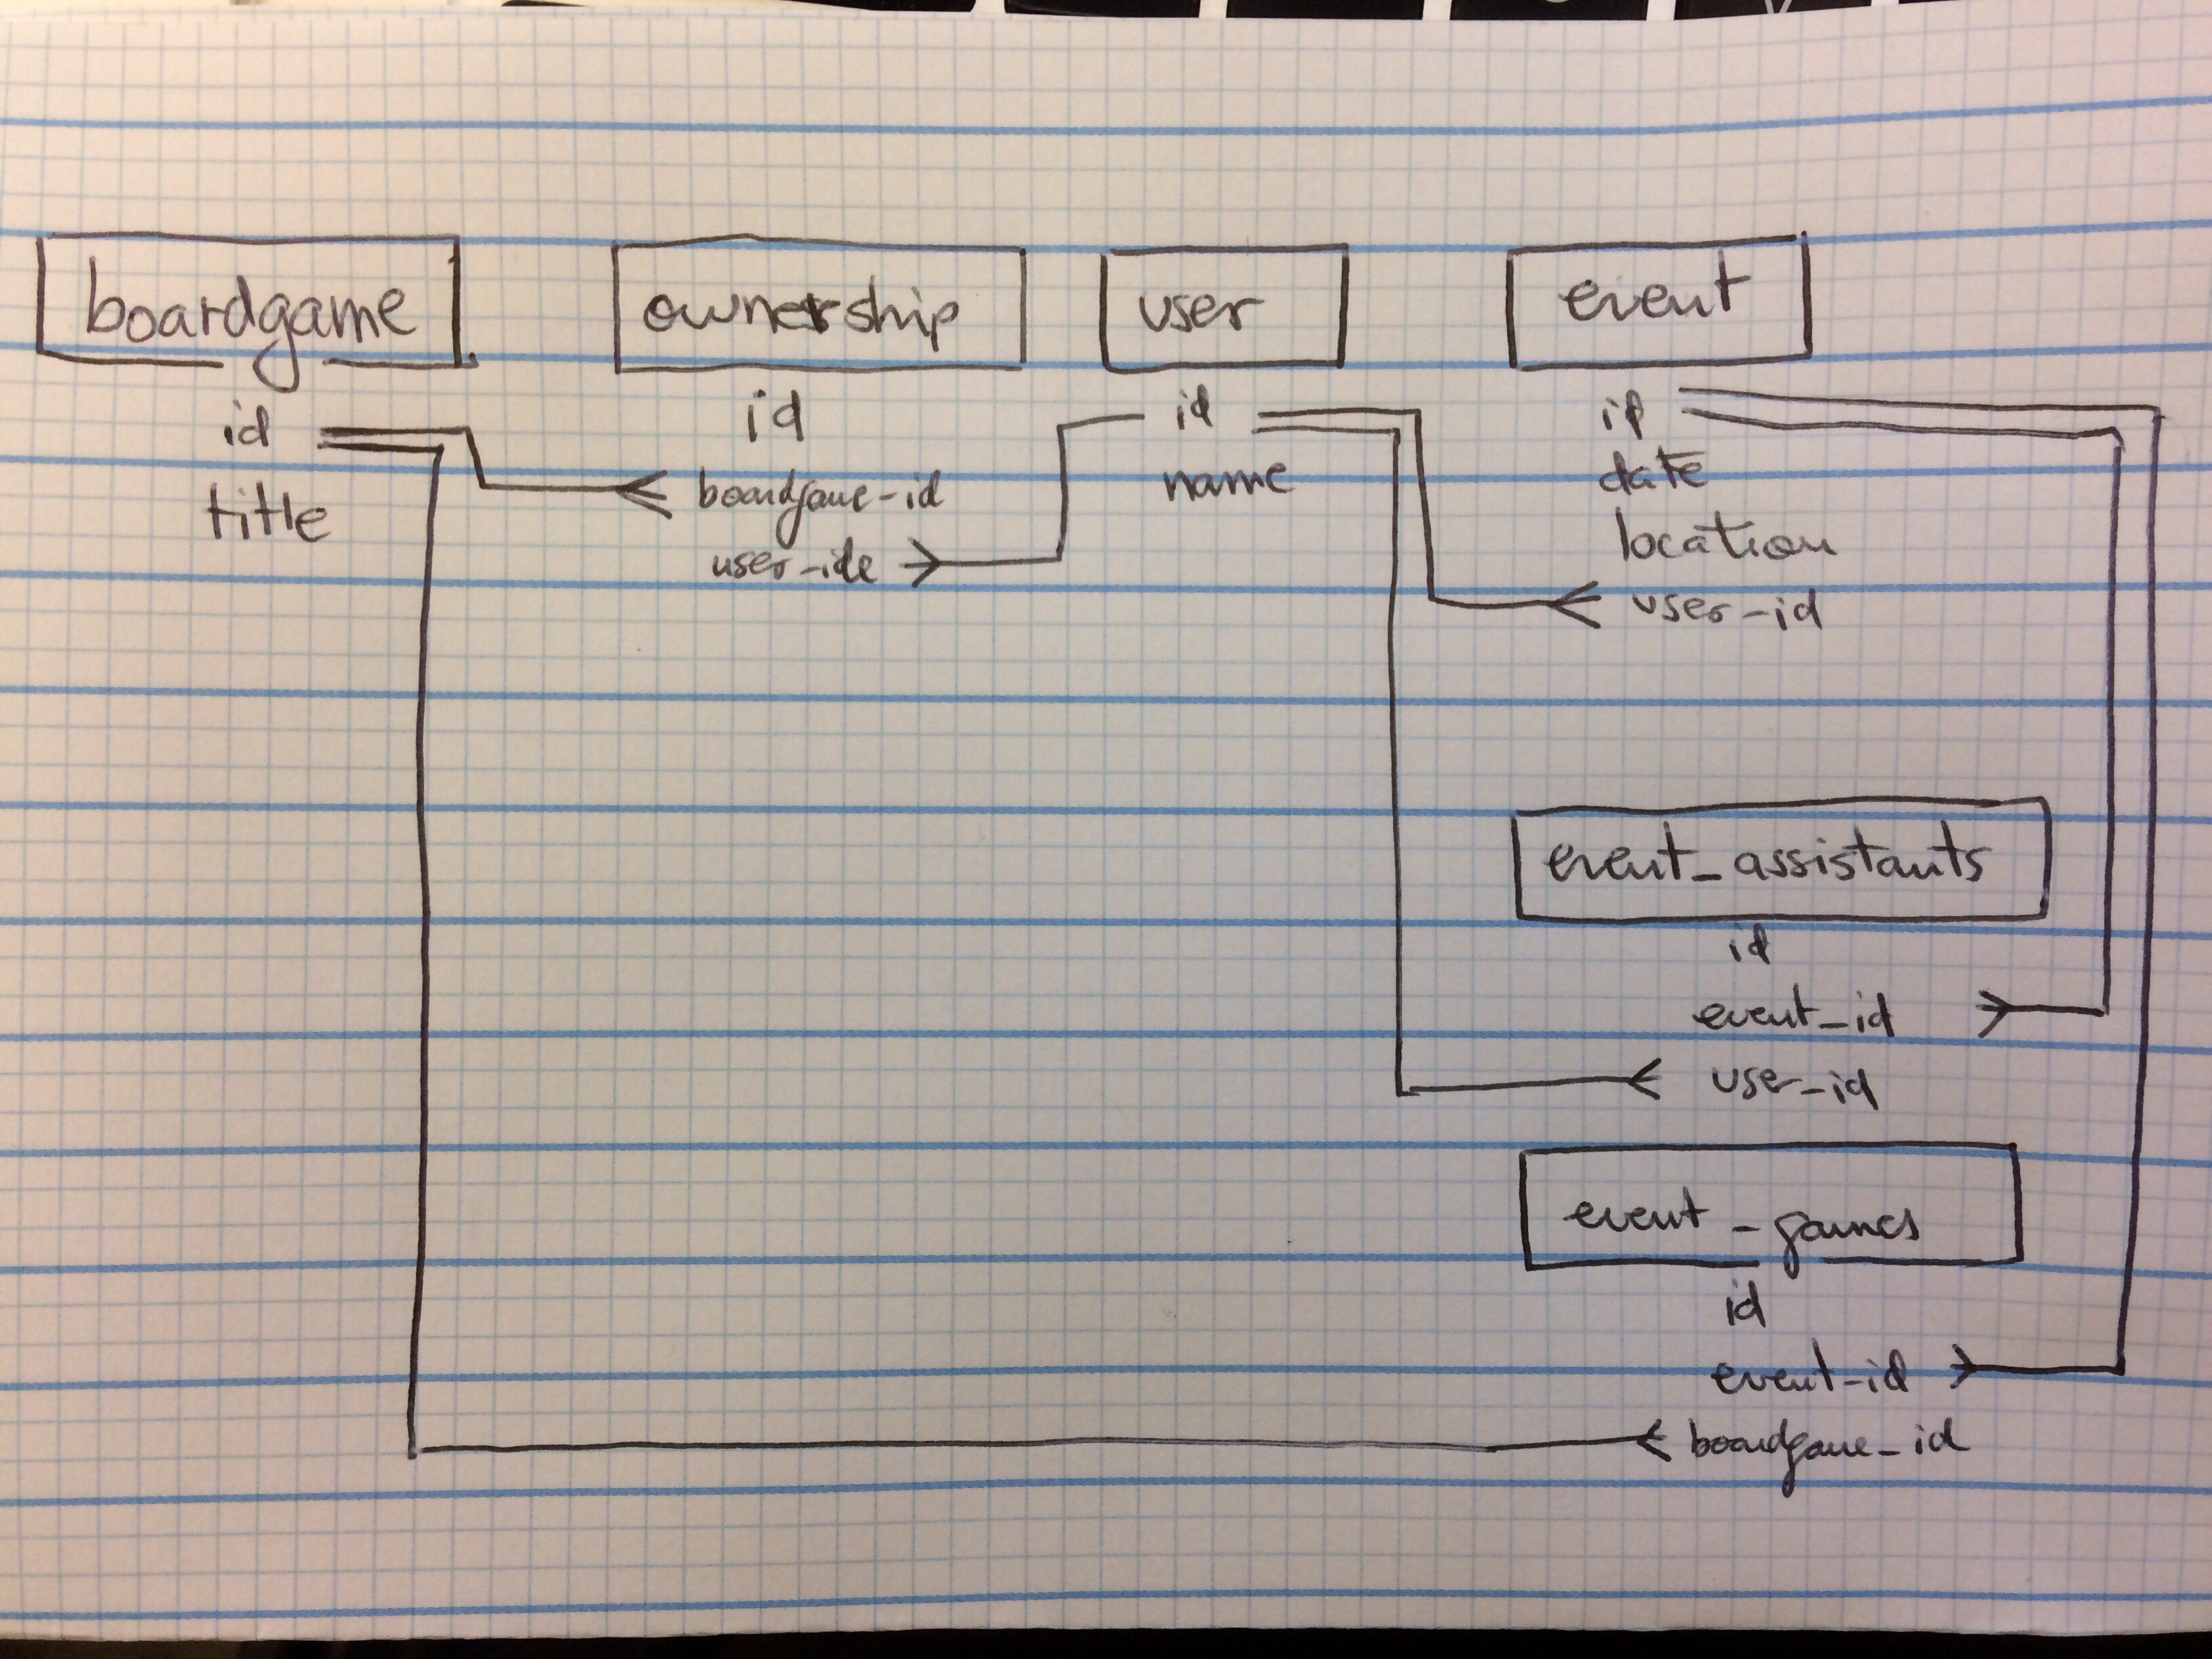 boardgame
id
title
ownership
id
boardgame-id
user-ide
user
id
name
event
id
date
location
user-id
event_assistants
id
event_id
user-id
event_games
id
event-id
boardgame_id